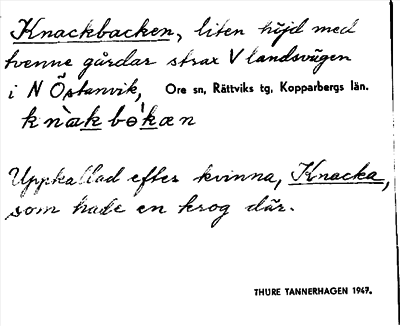 Knackbacken, liten höjd med
tvenne gårdar strax V landsvägen
i N Östanvik, Ore sn, Rättviks tg, Kopparbergs län.
knàkbə̍kæn
Uppkallad efter kvinna, Knacka,
som hade en krog där.
THURE TANNERHAGEN 1947.